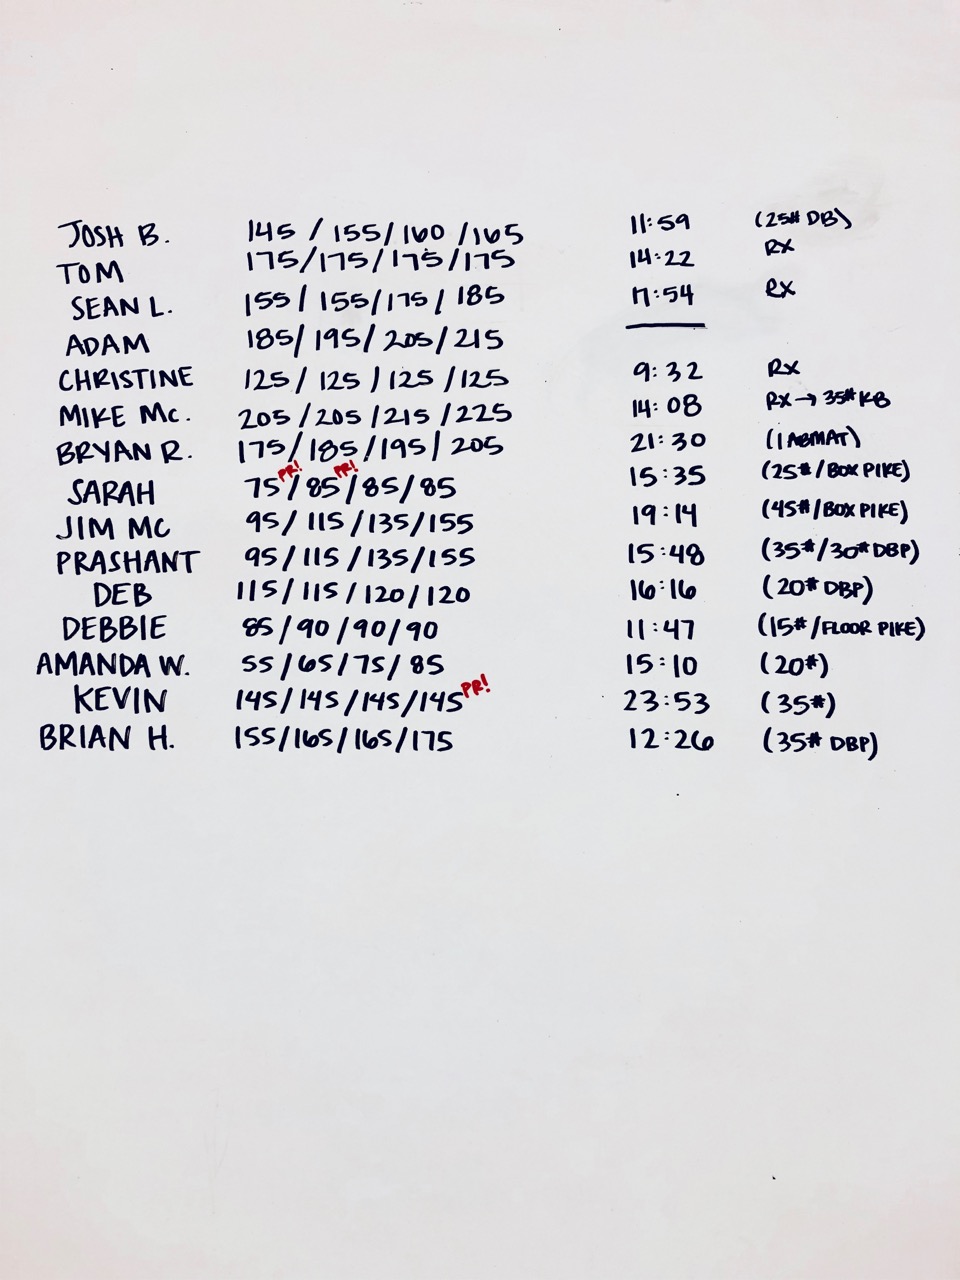 JOSH B. 145 / 155 / 160 / 165 11:59 (25# DB)
TOM 175/175/175/175 14:22 RX
SEAN L. 155 / 155/175 / 185 17:54 RX
ADAM 185/ 195/ 205/215 —
CHRISTINE 125/ 125 / 125 /125 9:32 RX
MIKE MC. 205 /205 /215 /225 14:08 RX → 35# KB
BRYAN R. 175/ 185 /195 / 205 21:30 (1 ABMAT)
SARAH 75 PR! / 85 PR! / 85/ 85 15:35 (25#/BOX PIKE)
JIM MC 95/ 115 /135/155 19:14 (45#/BOX PIKE)
PRASHANT 95/ 115 /135/155 15:48 (35#/30# DBP)
DEB 115/ 115 / 120/ 120 16:16 (20# DBP)
DEBBIE 85/ 90 /90/ 90 11:47 (15#/FLOOR PIKE)
AMANDA W. 55 /65/75/ 85 15:10 (20#)
KEVIN 145/145 /145/145 PR! 23:53 (35#)
BRIAN H. 155/165/165/175 12:26 (35# DBP)